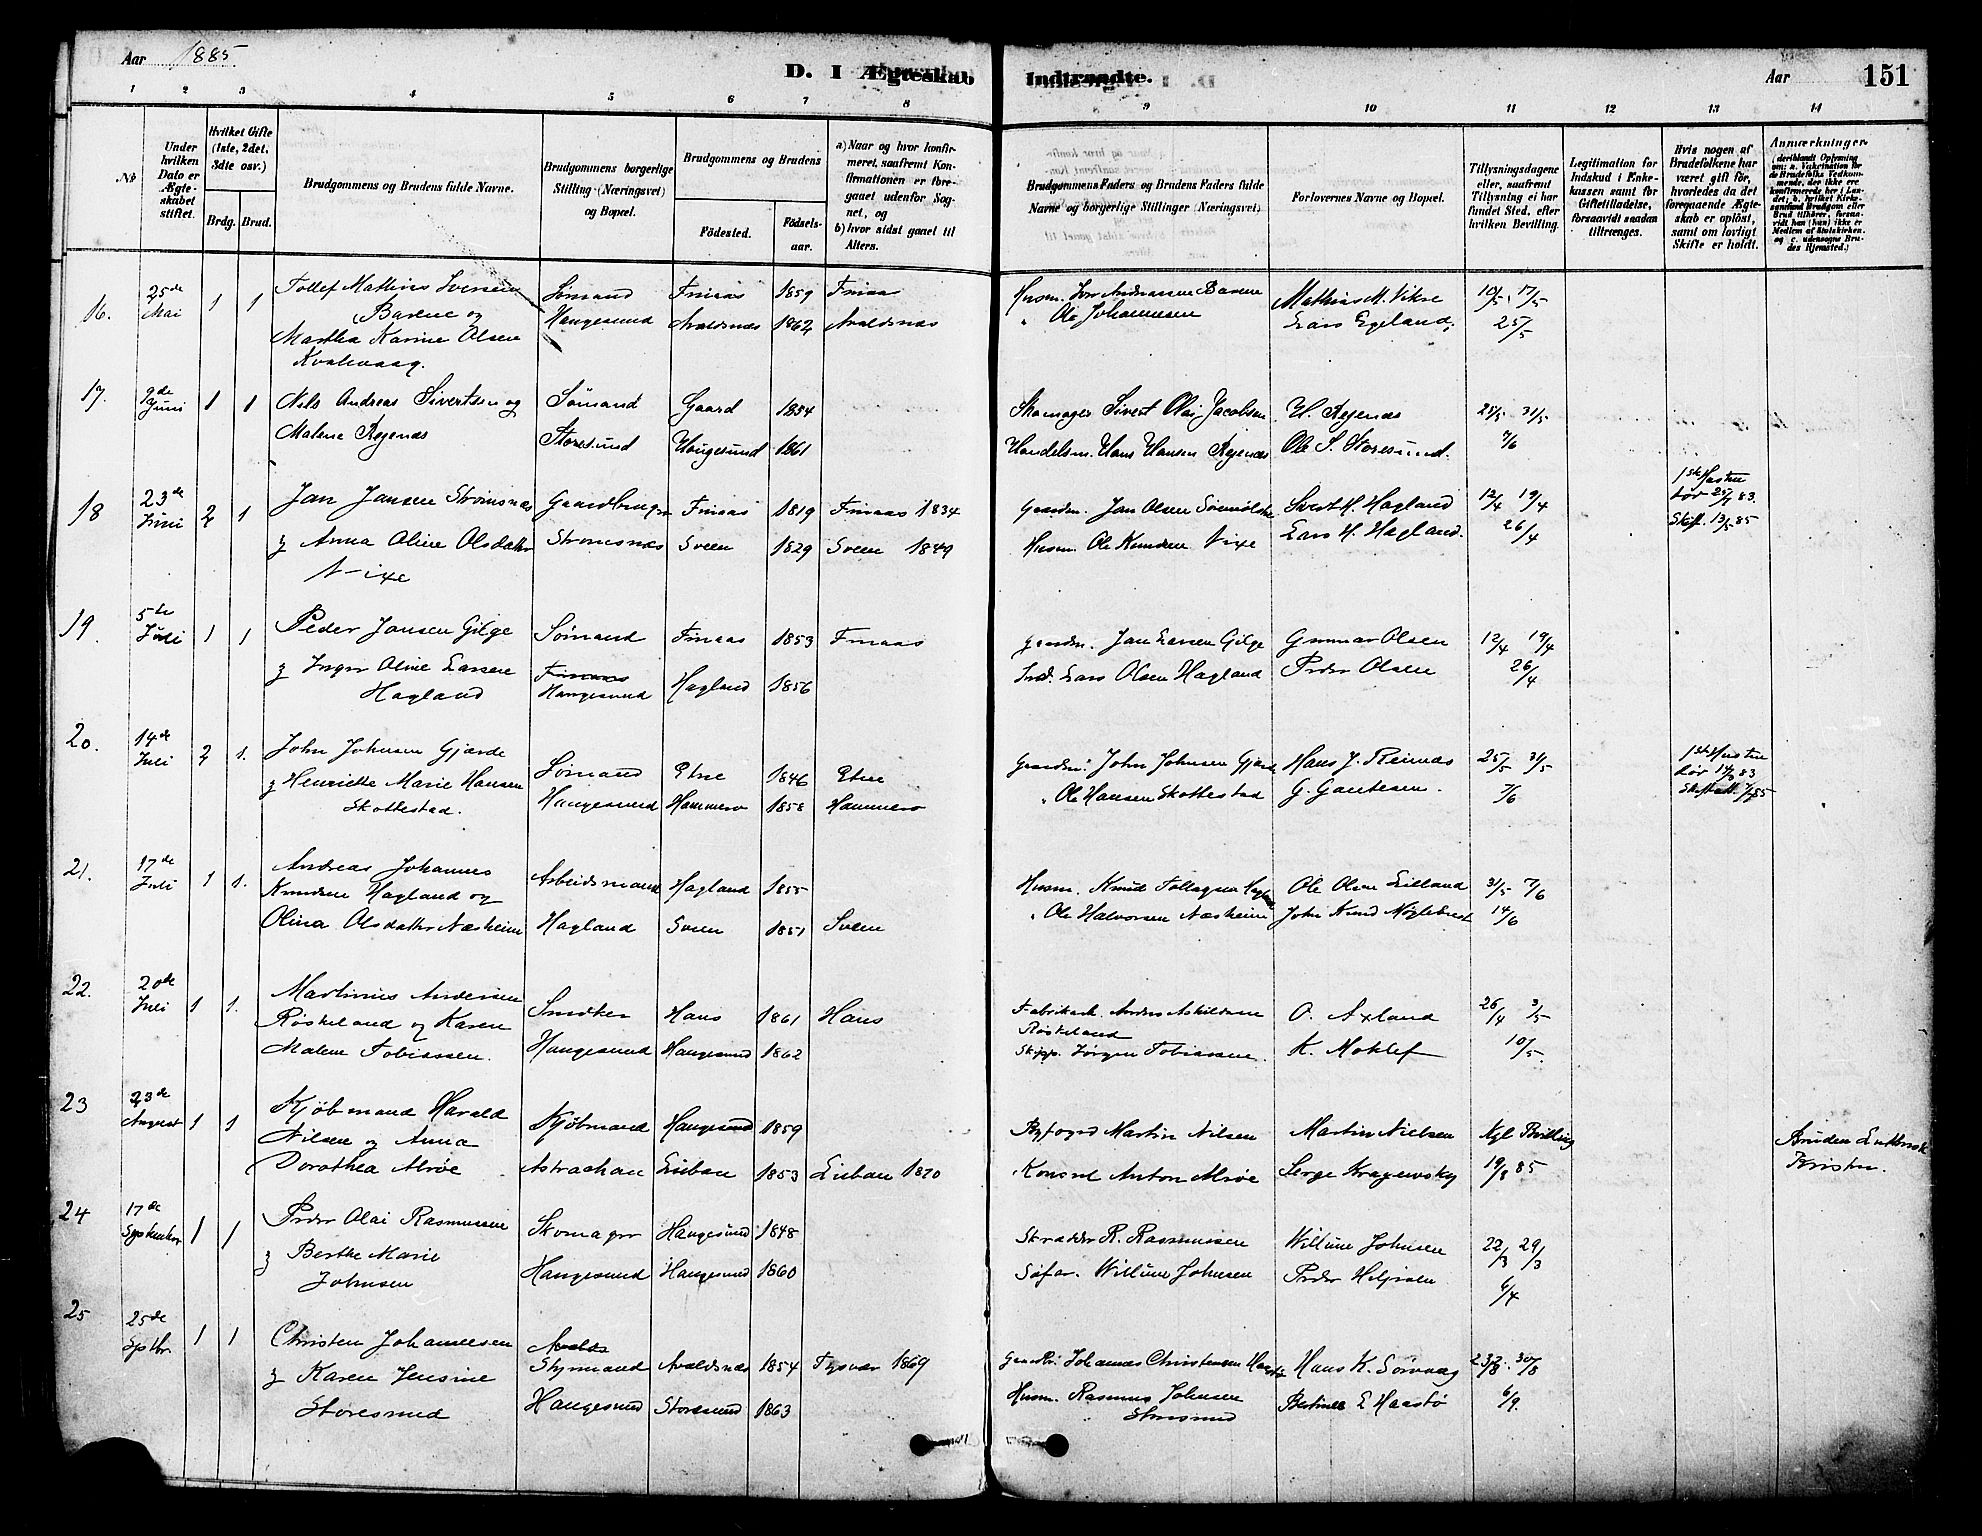 Aar 1885.
D. I Ægteskab
Indtraadte.
Aar
151
1 2 3 4 5 6 7 8 9 10 11 12 13 14
No.
Under hvilken Dato er Ægteskabet stiftet.
Hvilket Gifte (1ste, 2det, 3die osv.)
Brdg. Brud.
Brudgommens og Brudens fulde Navne.
Brudgommens borgerlige Stilling (Næringsvei) og Bopæl.
Brudgommens og Brudens
Födested.
Födselsaar.
a) Naar og hvor konfirmeret, saafremt Konfirmationen er foregaaet udenfor Sognet, og
b) hvor sidst gaaet til Alters.
Brudgommens Faders og Brudens Faders fulde Navne og borgerlige Stillinger (Næringsvei)
Forlovernes Navne og Bopæl.
Tillysningsdagene eller, saafremt Tillysning ei har fundet Sted, efter hvilken Bevilling.
Legitimation for Indskud i Enkekassen samt for Giftetilladelse, forsaavidt saadan tiltrænges.
Hvis nogen af Brudefolkene har været gift för, hvorledes da det foregaaende Ægteskab er oplöst, samt om lovligt Skifte er holdt.
Anmærkninger.
(deriblandt Oplysning om: a. Vakcination for de Brudefolks Vedkommende, der ikke ere konfirmerede her i Landet; b. hvilket Kirkesamfund Brudgom eller Brud tilhörer, forsaavidt han (hun) ikke er Medlem af Statskirken, og c. udensogns Brudes Hjemsted.)
16. 25de Mai 1 1 Tollef Mathias Iversen Sömand Finaas 1859 Finaas Husm. Iver Andreassen Barene Mathias M. Vikse 10/5 17/5
Barene og Haugesund Avaldsnæs 1862 Avaldsnæs " Ole Johannesen Lars Egeland; 25/5
Martha Karine Olsen
Kvalevaag.
17. 9de Juni 1 1 Nils Andreas Sivertsen og Sömand Gaard 1854 Skomager Sivert Olai Jacobsen H. Røjenæs 25/5 31/5
Malene Røjenæs Storesund Haugesund 1861 Handelsm. Hans Hansen Røjenæs Ole S. Storesund. 7/6
18 23de Juni 2 1 Jan Jansen Strømsnæs Gaardbruger Finaas 1819 Finaas 1834 Gaardm. Jan Olsen Sivert H. Hagland 12/4 19/4 1ste Hustru
og Anna Oline Olsdatter Strømsnæs Sveen 1829 Sveen 1849 Husm. Ole Knudsen Vixe Lars H. Hagland. 26/4 død 83.
Vixe Skift. 13/5 85
19. 5te Juli 1 1 Peder Jansen Gilge Sömand Finaas 1853 Finaas Gaardm. Jan Larsen Gilge Gunnar Olsen 12/4 19/4
og Inger Oline Larsen Finaas Haugesund Hagland 1856 Ind. Lars Olsen Hagland Peder Olsen 26/4
Hagland
20. 14de Juli 2 1. John Johnsen Gjærde Sömand Etne 1846 Etne Gaardm. John Johnsen Gjærde Hans J. Reinæs 25/5 31/5 1ste Hustru
og Henriette Marie Hansen Haugesund Hammerø 1858 Hammerø " Ole Hansen Skottestad G. Gautesen. 7/6 død 83
Skottestad. 85
21. 17de Juli 1 1. Andreas Johannes Arbeidsmand Hagland 1855 Husm. Knud Hagland Ole Olsen Eilland 31/5 7/6
Knudsen Hagland og Hagland Sveen 1851 Sveen " Ole Halvorsen Næsheim John Knud 14/6
Olina Olsdatter Næsheim
22. 20de Juli 1 1. Martinus Andersen Snedker Haus 1861 Haus Fabrikarb. Anders Askildsen O. Axland 26/4 3/5
Røskeland og Karen Haugesund Haugesund 1862 Røskeland
Malene Tobiassen. Skipp. Jørgen Tobiassen. K. Moklef 10/5.
23 23de August 1 1 Kjøbmand Harald Kjøbmand Haugesund 1859 Byfoged Martin Nilsen Martin Nielsen Kgl Bevilling Bruden Luthersk
Nilsen og Anna Astrachan Liebau 1853 Liebau 1870 Konsul Anton Alrøe Serge Kragewsky 19/8 85
Dorothea Alrøe
24 17de September 1 1 Peder Olai Rasmussen Skomager Haugesund 1848 Skrædder R. Rasmussen Willum Johnsen 22/3 29/3
og Berthe Marie Haugesund Haugesund 1860 Søfar. Willum Johnsen Peder Helgesen 6/4
Johnsen
25 25de Septbr. 1 1 Christen Johannesen Avalds Styrmand Avaldsnæs 1854 Tysvær 1869 Gaardbr. Johannes Christensen Hans K. Sørvaag 23/8 30/8
og Karen Jensine Haugesund Storesund 1863 Husm. Rasmus Johnsen Bertines E Haastø 6/9.
Storesund Storesund